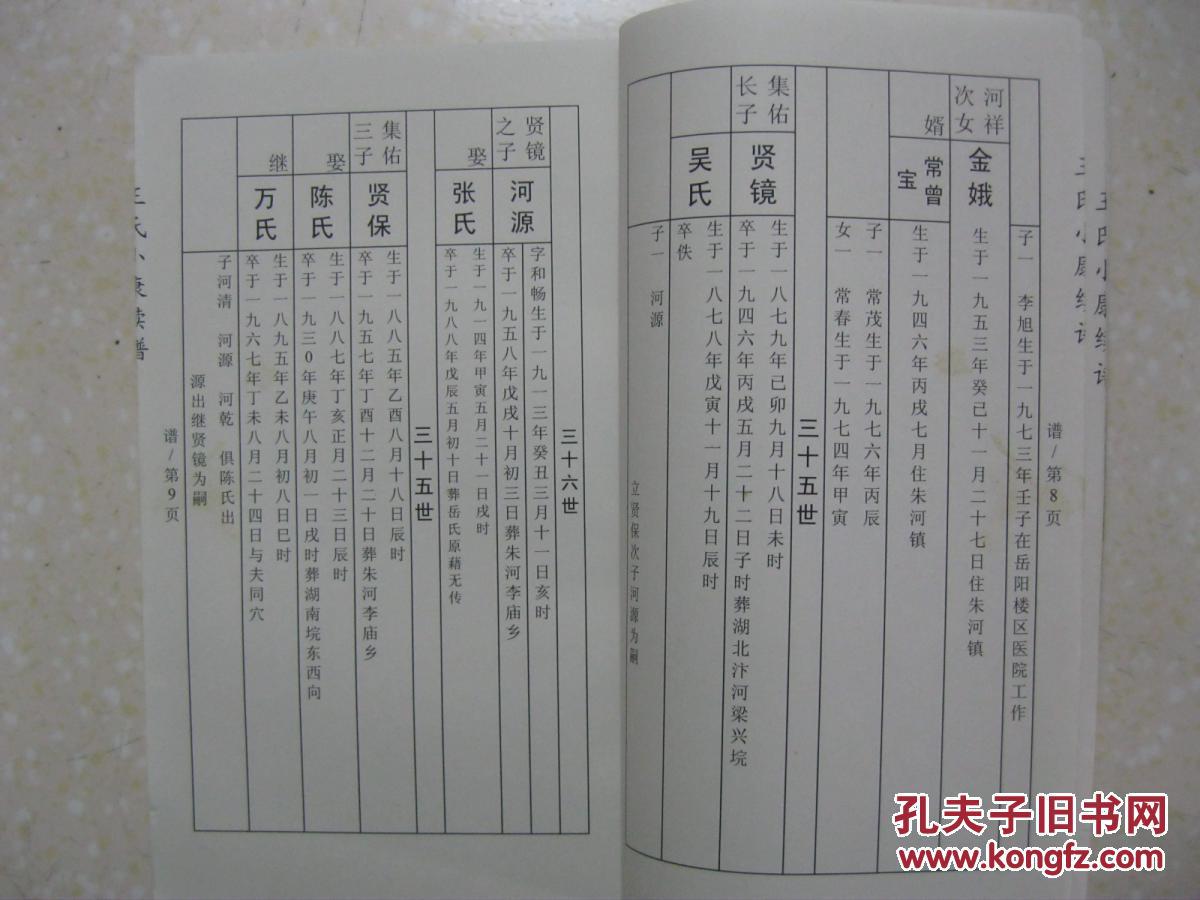 王氏小康续谱
谱/第8页
子一 李旭生于一九七三年壬子在岳阳楼区医院工作
河祥
次女
金娥
生于一九五三年癸已十一月二十七日住朱河镇
婿
常曾
宝
生于一九四六年丙戌七月住朱河镇
子一 常茂生于一九七六年丙辰
女一 常春生于一九七四年甲寅
三十五世
集佑
长子
贤镜
生于一八七九年己卯九月十八日未时
卒于一九四六年丙戌五月二十二日子时葬湖北汴河梁兴垸
吴氏
生于一八七八年戊寅十一月十九日辰时
卒佚
子一 河源
立贤保次子河源为嗣
三十六世
贤镜
之子
河源
字和畅生于一九一三年癸丑三月十一日亥时
卒于一九五八年戊戌十月初三日葬朱河李庙乡
娶
张氏
生于一九一四年甲寅五月二十一日戌时
卒于一九八八年戊辰五月初十日葬岳氏原藉无传
三十五世
集佑
三子
贤保
生于一八八五年乙酉八月十八日辰时
卒于一九五七年丁酉十二月二十日葬朱河李庙乡
娶
陈氏
生于一八八七年丁亥正月二十三日辰时
卒于一九三0年庚午八月初一日戌时葬湖南垸东西向
继
万氏
生于一八九五年乙未八月初八日巳时
卒于一九六七年丁未八月二十四日与夫同穴
子河清 河源 河乾 俱陈氏出
源出继贤镜为嗣
谱/第9页
王氏小康续谱
孔夫子旧书网
www.kongfz.com